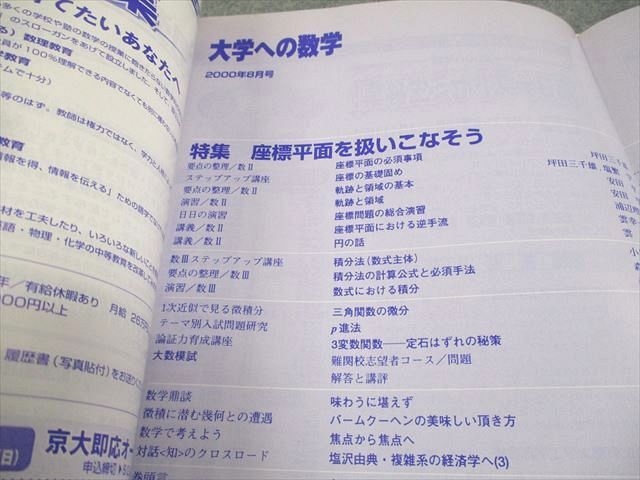 集
てたいあなたへ
多くの学校や塾の数学の授業に飽きたらない
のスローガンをあげて設立しました。そして、
る)数理教育
員が100%理解できる内容でなくても
学教育
テムで十分)
等のはず。教師は権力ではなく、学力と人格で
教育
情報を得、情報を伝える」ための語学で
材を工夫したり、いろいろな新しいことを
英語・物理・化学の中等教育を改革して
年/有給休暇あり 月給 26万
000円以上
履歴書(写真貼付)をお送りく
(日)
京大即応オー
申込締切
大学への数学
2000年8月号
特集 座標平面を扱いこなそう
要点の整理/数Ⅱ 座標平面の必須事項 坪田三千雄
ステップアップ講座 座標の基礎固め 坪田三千雄・塩繁
要点の整理/数Ⅱ 軌跡と領域の基本 安田
演習/数Ⅱ 軌跡と領域 安田
日日の演習 座標問題の総合演習 浦辺理
講義/数Ⅱ 座標平面における逆手流 雲幸
講義/数Ⅱ 円の話 雲
数Ⅲステップアップ講座 積分法(数式主体) 小
要点の整理/数Ⅲ 積分法の計算公式と必須手法 森
演習/数Ⅲ 数式における積分
1次近似で見る微積分 三角関数の微分
テーマ別入試問題研究 p進法
論証力育成講座 3変数関数――定石はずれの秘策
大数模試 難関校志望者コース/問題
解答と講評
数学鼎談 味わうに堪えず
微積に潜む幾何との遭遇 バームクーヘンの美味しい頂き方
数学で考えよう 焦点から焦点へ
対話<知>のクロスロード 塩沢由典・複雑系の経済学へ(3)
巻頭言